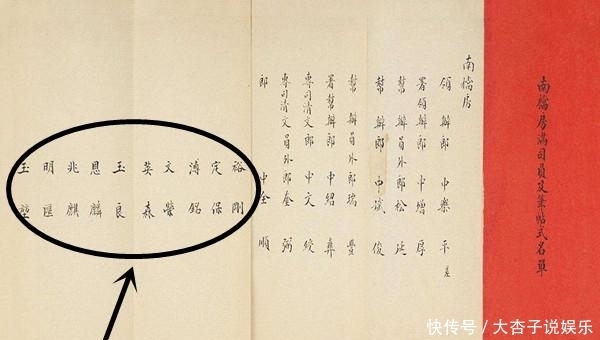 南檔房滿司員及筆帖式名單
南檔房
領辦郎中樂平差
署領辦郎中增厚
幫辦員外郎松延
幫辦郎中誠俊
幫辦員外郎瑞豐
署幫辦郎中紹彝
專司清文郎中文綬
專司清文員外郎奎弼
郎中全順
裕剛
定保
溥銘
文榮
英森
玉良
恩麟
兆麒
明匯
玉
快传号／大杏子说娱乐